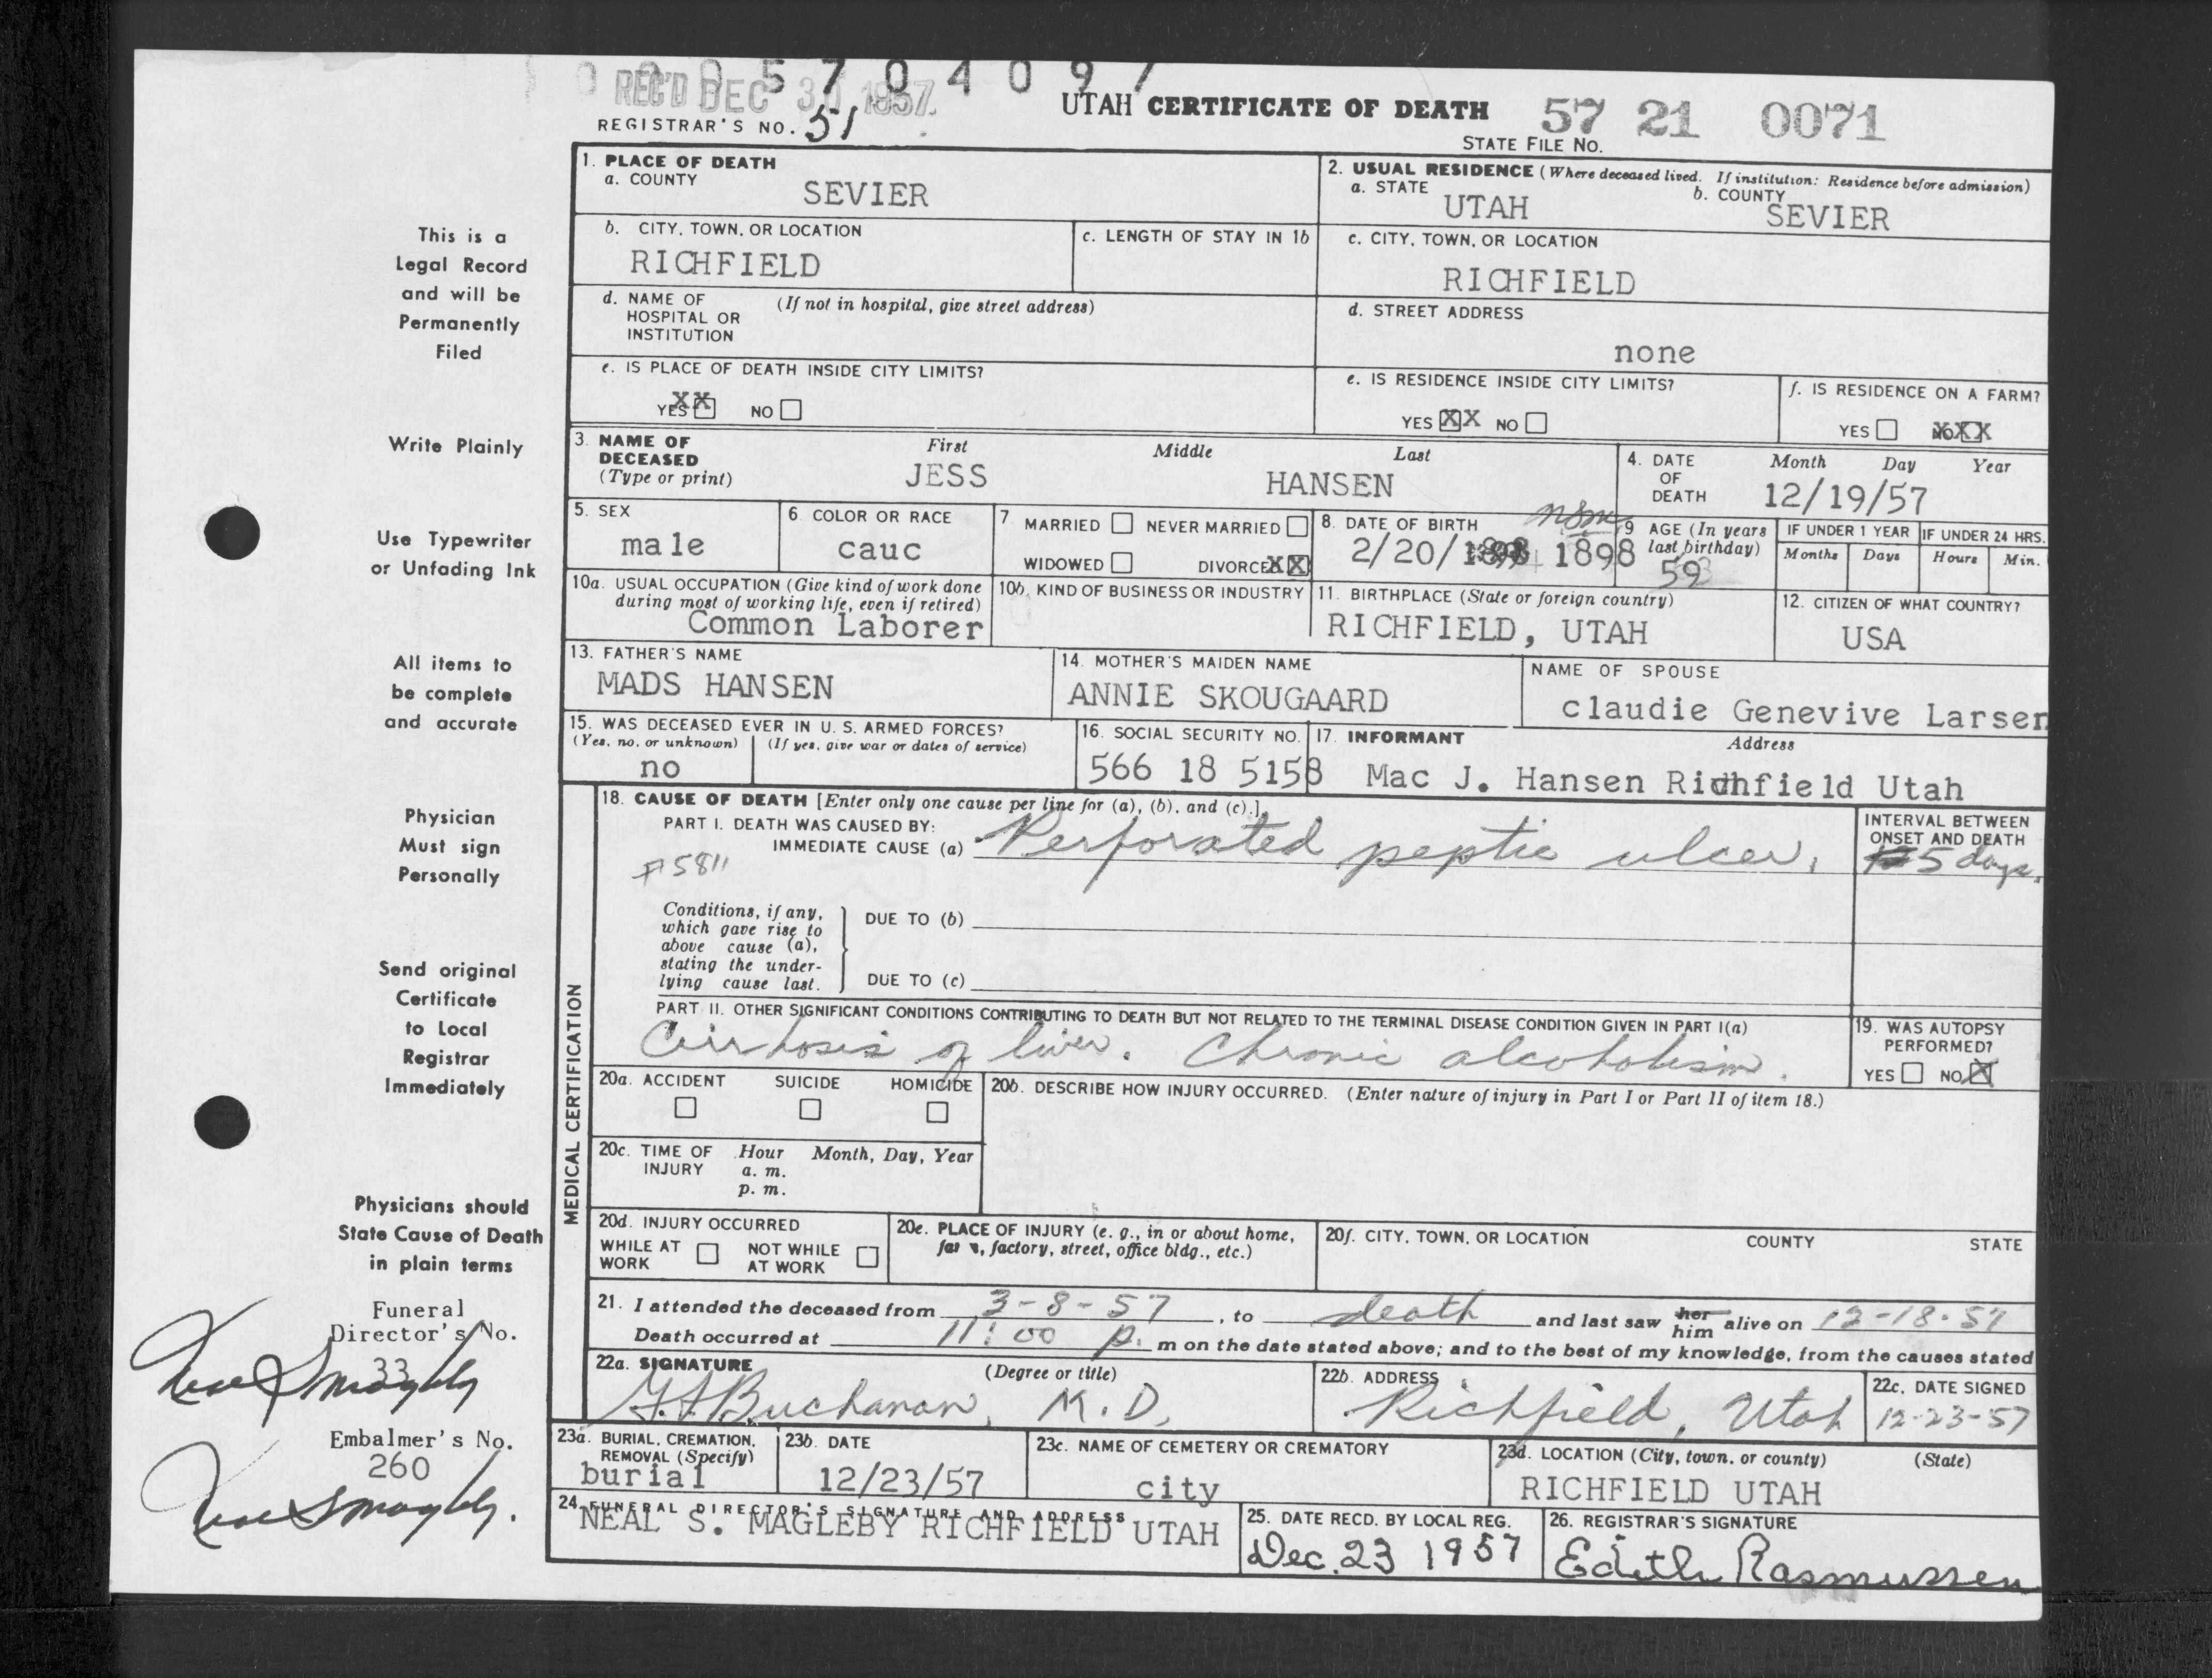 0005704097
REC'D DEC 30 1957
UTAH CERTIFICATE OF DEATH 57 21 0071
REGISTRAR'S NO. 51
STATE FILE NO.
This is a
Legal Record
and will be
Permanently
Filed
Write Plainly
Use Typewriter
or Unfading Ink
All items to
be complete
and accurate
Physician
Must sign
Personally
Send original
Certificate
to Local
Registrar
Immediately
Physicians should
State Cause of Death
in plain terms
Funeral
Director's No.
33
Embalmer's No.
260
1. PLACE OF DEATH
a. COUNTY
SEVIER
2. USUAL RESIDENCE (Where deceased lived. If institution: Residence before admission)
a. STATE b. COUNTY
UTAH SEVIER
b. CITY, TOWN, OR LOCATION
RICHFIELD
c. LENGTH OF STAY IN 1b
c. CITY, TOWN, OR LOCATION
RICHFIELD
d. NAME OF (If not in hospital, give street address)
HOSPITAL OR
INSTITUTION
d. STREET ADDRESS
none
e. IS PLACE OF DEATH INSIDE CITY LIMITS?
YES XX NO
e. IS RESIDENCE INSIDE CITY LIMITS?
YES XX NO
f. IS RESIDENCE ON A FARM?
YES NO XXX
3. NAME OF First Middle Last
DECEASED
(Type or print)
JESS HANSEN
4. DATE Month Day Year
OF
DEATH 12/19/57
5. SEX
male
6. COLOR OR RACE
cauc
7 MARRIED NEVER MARRIED
WIDOWED DIVORCED XX
8. DATE OF BIRTH
2/20/ 1898
9 AGE (In years
last birthday)
59
IF UNDER 1 YEAR IF UNDER 24 HRS.
Months Days Hours Min.
10a. USUAL OCCUPATION (Give kind of work done
during most of working life, even if retired)
Common Laborer
10b. KIND OF BUSINESS OR INDUSTRY
11. BIRTHPLACE (State or foreign country)
RICHFIELD, UTAH
12. CITIZEN OF WHAT COUNTRY?
USA
13. FATHER'S NAME
MADS HANSEN
14. MOTHER'S MAIDEN NAME
ANNIE SKOUGAARD
NAME OF SPOUSE
claudie Genevive Larsen
15. WAS DECEASED EVER IN U. S. ARMED FORCES?
(Yes, no, or unknown) (If yes, give war or dates of service)
no
16. SOCIAL SECURITY NO.
566 18 5158
17. INFORMANT Address
Mac J. Hansen Richfield Utah
MEDICAL CERTIFICATION
18. CAUSE OF DEATH [Enter only one cause per line for (a), (b), and (c).]
PART I. DEATH WAS CAUSED BY:
IMMEDIATE CAUSE (a) Perforated peptic ulcer.
INTERVAL BETWEEN
ONSET AND DEATH
5 days.
5811
Conditions, if any,
which gave rise to
above cause (a),
stating the under-
lying cause last.
DUE TO (b)
DUE TO (c)
PART II. OTHER SIGNIFICANT CONDITIONS CONTRIBUTING TO DEATH BUT NOT RELATED TO THE TERMINAL DISEASE CONDITION GIVEN IN PART I(a)
Cirrhosis of liver. Chronic alcoholism.
19. WAS AUTOPSY
PERFORMED?
YES NO X
20a. ACCIDENT SUICIDE HOMICIDE
20b. DESCRIBE HOW INJURY OCCURRED. (Enter nature of injury in Part I or Part II of item 18.)
20c. TIME OF Hour Month, Day, Year
INJURY a. m.
p. m.
20d. INJURY OCCURRED
WHILE AT NOT WHILE
WORK AT WORK
20e. PLACE OF INJURY (e. g., in or about home,
farm, factory, street, office bldg., etc.)
20f. CITY, TOWN, OR LOCATION COUNTY STATE
21. I attended the deceased from 3-8-57, to death and last saw her him alive on 12-18-57
Death occurred at 11:00 p. m on the date stated above; and to the best of my knowledge, from the causes stated
22a. SIGNATURE (Degree or title)
Buchanan, M.D.
22b. ADDRESS
Richfield, Utah
22c. DATE SIGNED
12-23-57
23a. BURIAL, CREMATION,
REMOVAL (Specify)
burial
23b. DATE
12/23/57
23c. NAME OF CEMETERY OR CREMATORY
city
23d. LOCATION (City, town, or county) (State)
RICHFIELD UTAH
24. FUNERAL DIRECTOR'S SIGNATURE AND ADDRESS
NEAL S. MAGLEBY RICHFIELD UTAH
25. DATE RECD. BY LOCAL REG.
Dec. 23 1957
26. REGISTRAR'S SIGNATURE
Edith Rasmussen